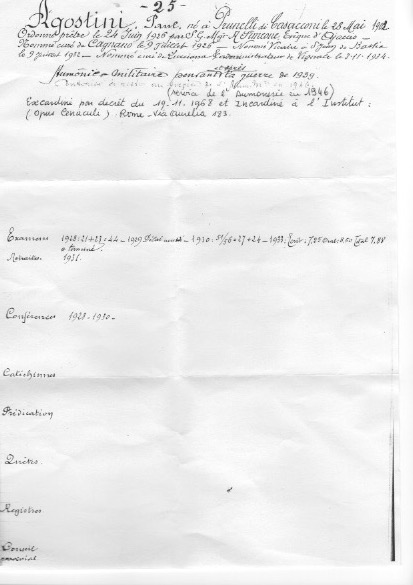 - 25 -
Agostini, Paul, né à Prunelli di Casacconi le 28 Mai
Ordonné prêtre le 24 Juin 1926 par S.G. Mgr Simeone, Evêque d'Ajaccio -
Nommé curé de Cagnano le 9 juillet 1926 - Nommé Vicaire à St Jean de Bastia
le 9 juillet 1932 - Nommé curé de Luciana de Vignale le 2-11-1934.
Aumônier militaire pendant et après la guerre de 1939.
(Service de l'Aumônerie en 1946)
Excardiné par décret du 19.11.1968 et Incardiné à l'Institut :
(Opus Cenaculi) Rome - Via Aurelia 183.
Examens 1928: 21+23+24 - 1929 - 1930: +27+24 -
Retraites. 1931.
Conférences 1928-1930 -
Catéchismes
Prédication
Quêtes.
Registres
Conseil
paroissial